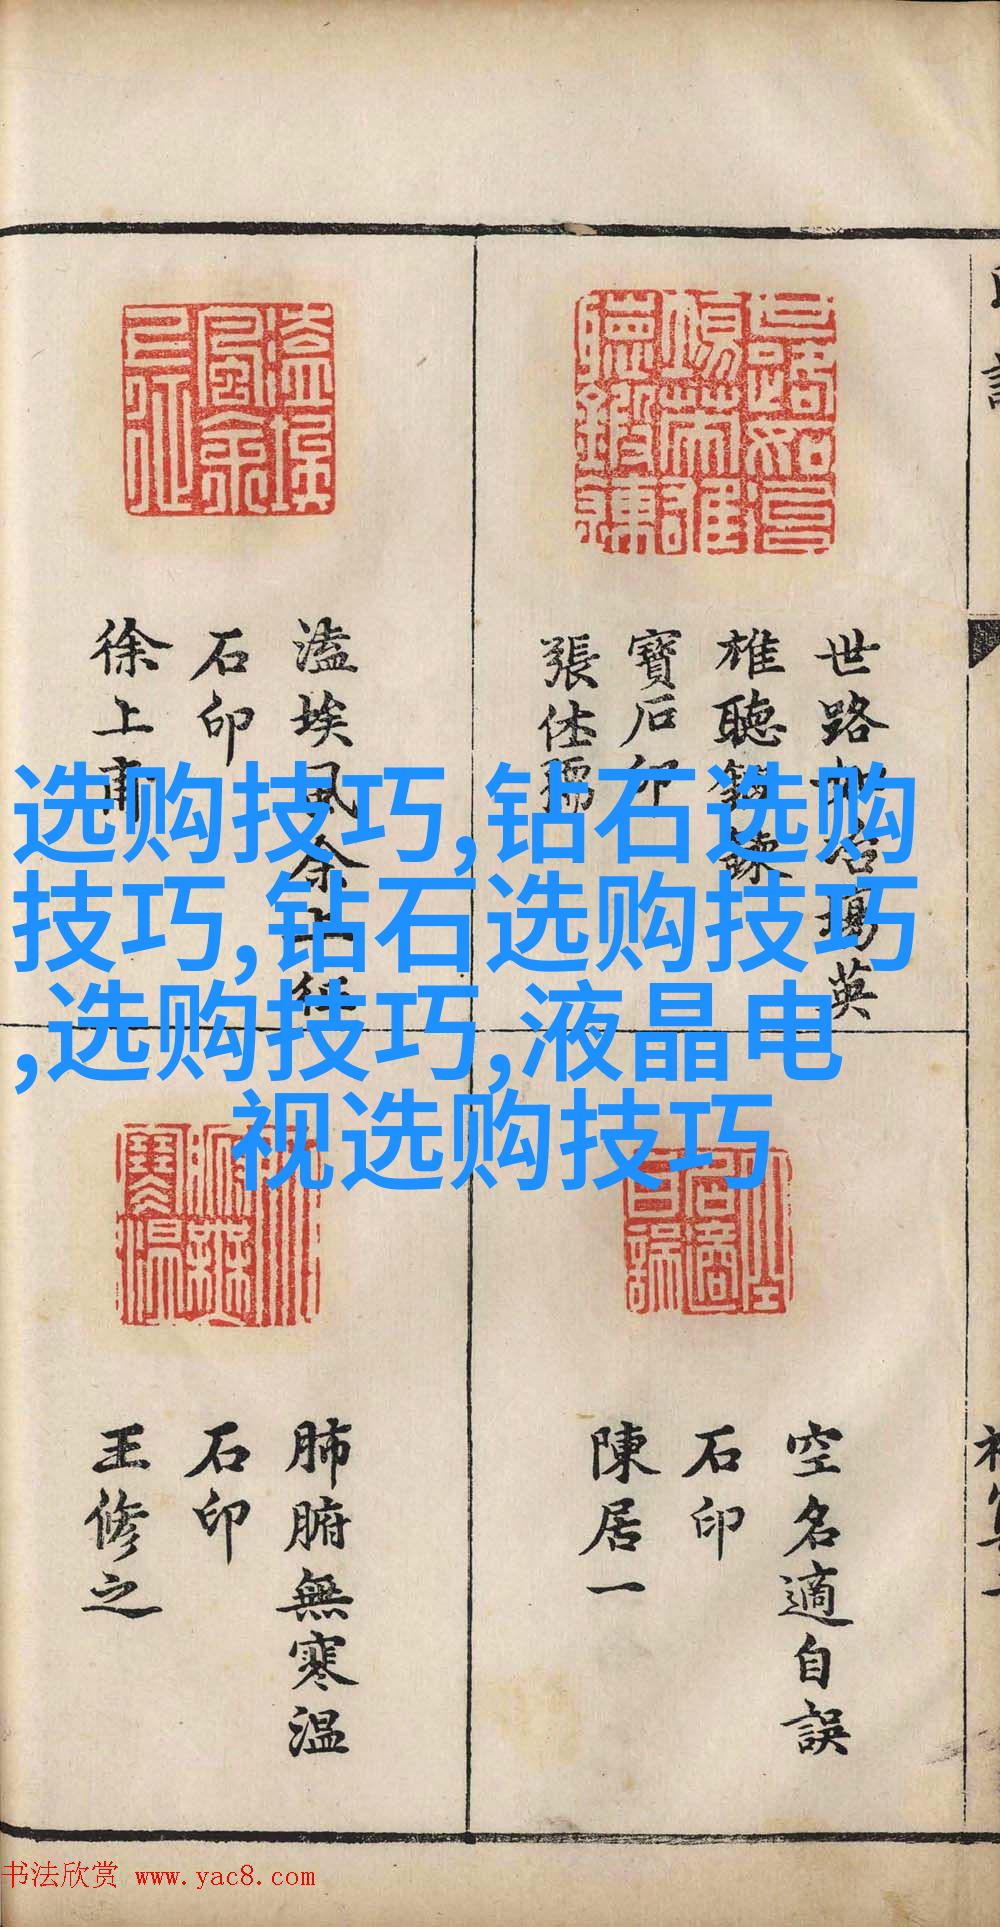 选购技巧,钻石选购
技巧,钻石选购技巧
,选购技巧,液晶电
视选购技巧
世路如冶英
雄聽鍛鍊
寶石印
張
溘埃風余上征
石印
徐上甫
空名適自誤
石印
陳居一
肺腑無寒溫
石印
王修之
书法欣赏 www.yac8.com